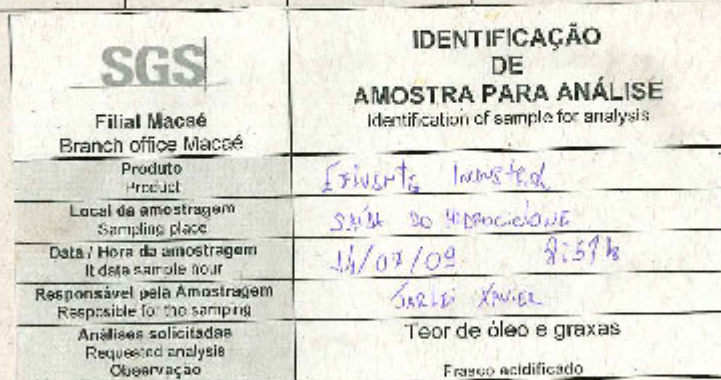 SGS
IDENTIFICAÇÃO
DE
AMOSTRA PARA ANÁLISE
Identification of sample for analysis
Filial Macaé
Branch office Macaé
Produto
Product
Efluente Industrial
Local da amostragem
Sampling place
SAÍDA DO HIDROCICLONE
Data / Hora da amostragem
It date sample hour
14/07/09
Responsável pela Amostragem
Resposible for the samping
XAVIER
Análises solicitadas
Requested analysis
Teor de óleo e graxas
Observação
Frasco acidificado